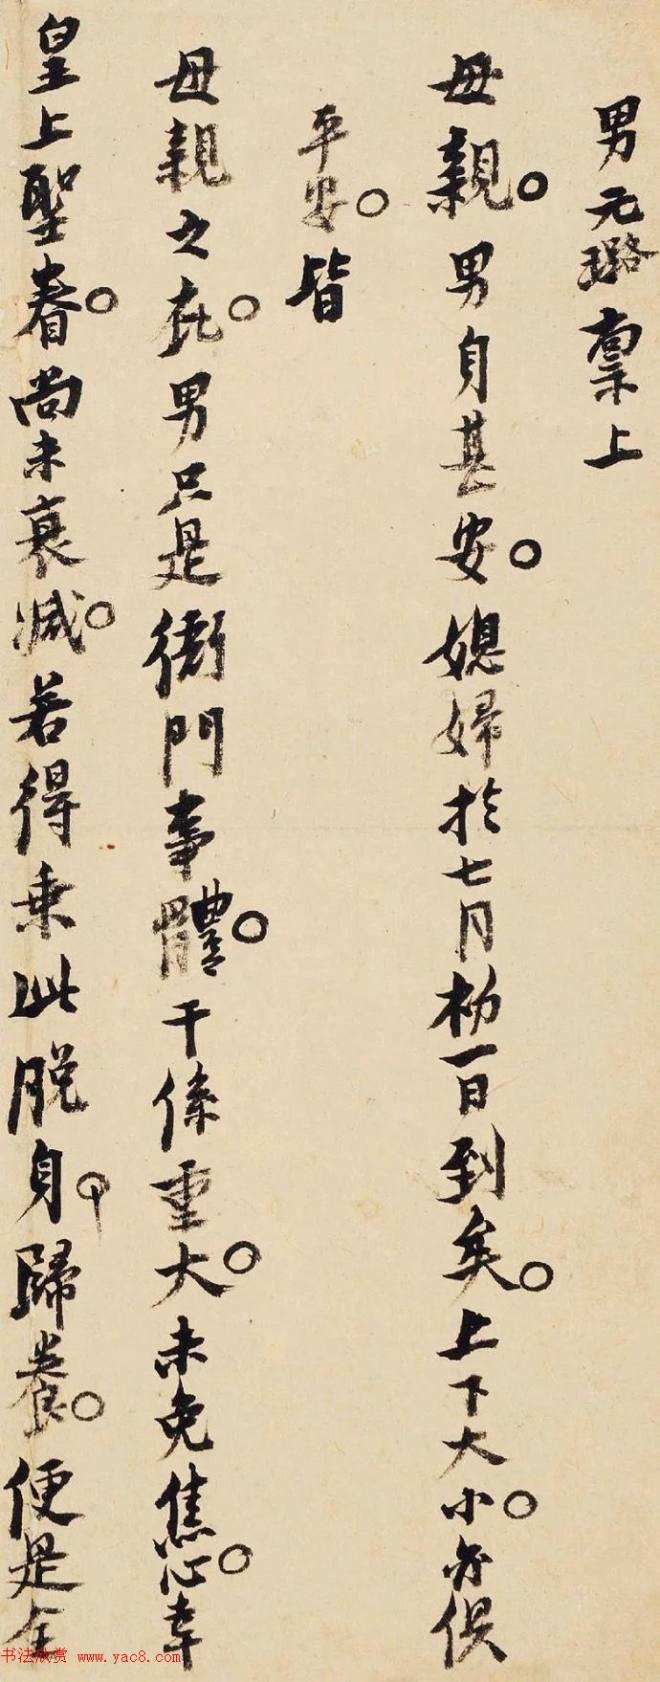 男元璐稟上
母親。男自甚安。媳婦於七月初一日到矣。上下大小。亦俱
平安。皆
母親之庇。男只是衙門事體。干係重大。未免焦心。幸
皇上聖眷。尚未衰減。若得乘此脫身歸養。便是全
书法欣赏 www.yac8.com